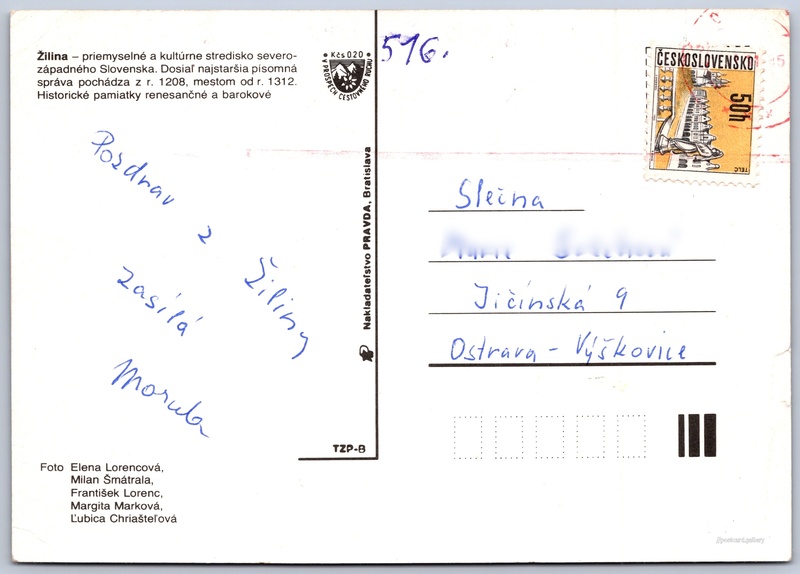 Žilina – priemyselné a kultúrne stredisko severo-
západného Slovenska. Dosiaľ najstaršia pisomná
správa pochádza z r. 1208, mestom od r. 1312.
Historické pamiatky renesančné a barokové
Kčs 020
V PROSPECH CESTOVNÉHO RUCHU
516.
ČESKOSLOVENSKO
50h
TELČ
Pozdrav z Žiliny
zasílá
Nakladateľstvo PRAVDA, Bratislava
Slečna
Jičínská 9
Ostrava - Výškovice
TZP-B
Foto Elena Lorencová,
Milan Šmátrala,
František Lorenc,
Margita Marková,
Ľubica Chriašteľová
//postcard.gallery